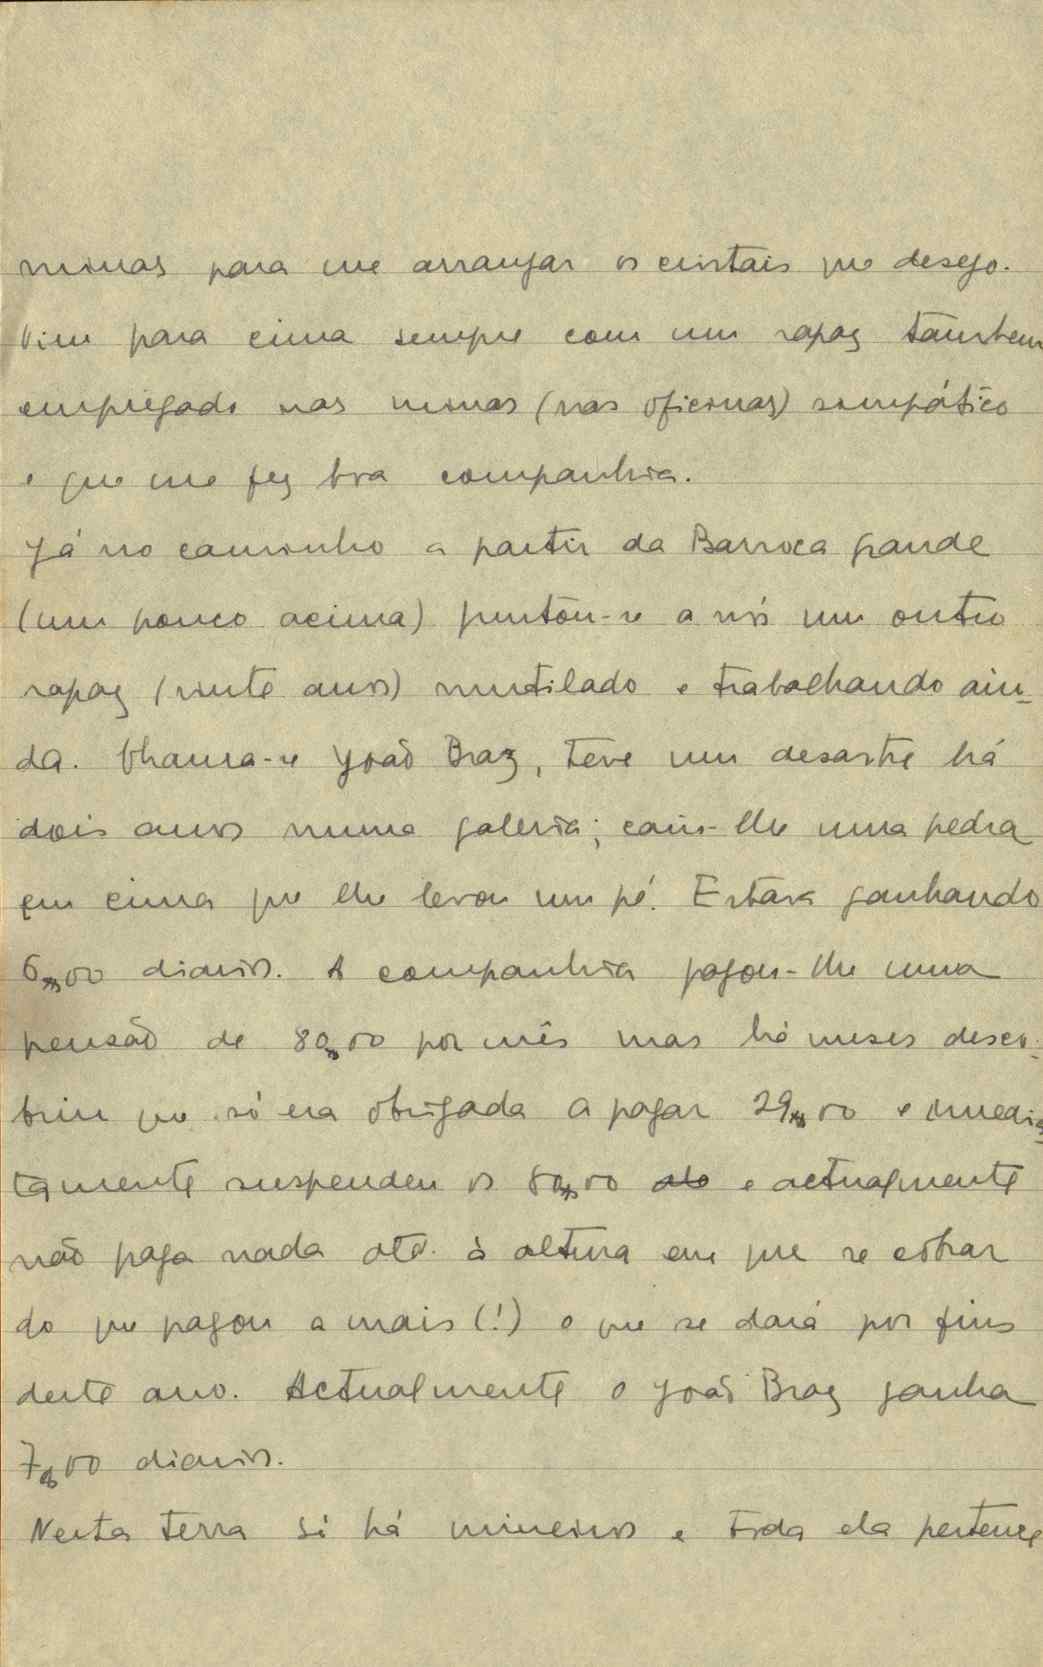 minas para me arranjar os cristais que desejo.
Vim para cima sempre com um rapaz tambem
empregado nas minas (nas oficinas) simpático
e que me fez boa companhia.
Já no caminho a partir da Barroca grande
(um pouco acima) juntou-se a nós um outro
rapaz (vinte anos) mutilado e trabalhando ain-
da. Chama-se João Braz, teve um desastre há
dois anos numa galeria; caiu-lhe uma pedra
em cima que lhe levou um pé. Estava ganhando
6$00 diarios. A companhia pagou-lhe uma
pensão de 80$00 por mês mas há meses desco-
briu que só era obrigada a pagar 29$00 e imedia-
tamente suspendeu os 80$00 e actualmente
não paga nada até à altura em que se cobrar
do que pagou a mais (!) o que se dará por fins
deste ano. Actualmente o João Braz ganha
7$00 diarios.
Nesta terra só há mineiros e toda ela pertence